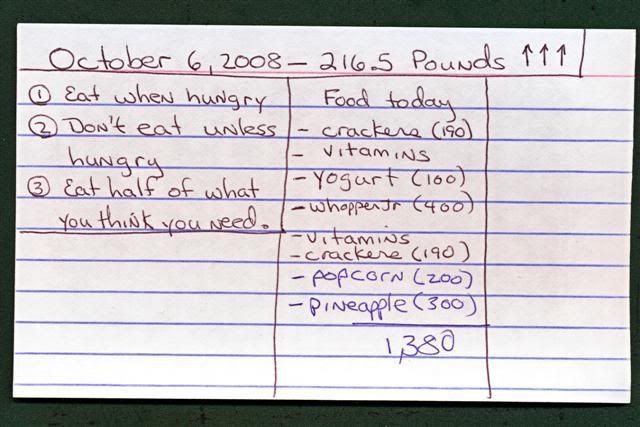 October 6, 2008 — 216.5 Pounds ↑↑↑
① Eat when hungry
② Don't eat unless
hungry
③ Eat half of what
you think you need.
Food today
- crackers (190)
- vitamins
- yogurt (100)
- whopper Jr (400)
- vitamins
- crackers (190)
- popcorn (200)
- pineapple (300)
1,380